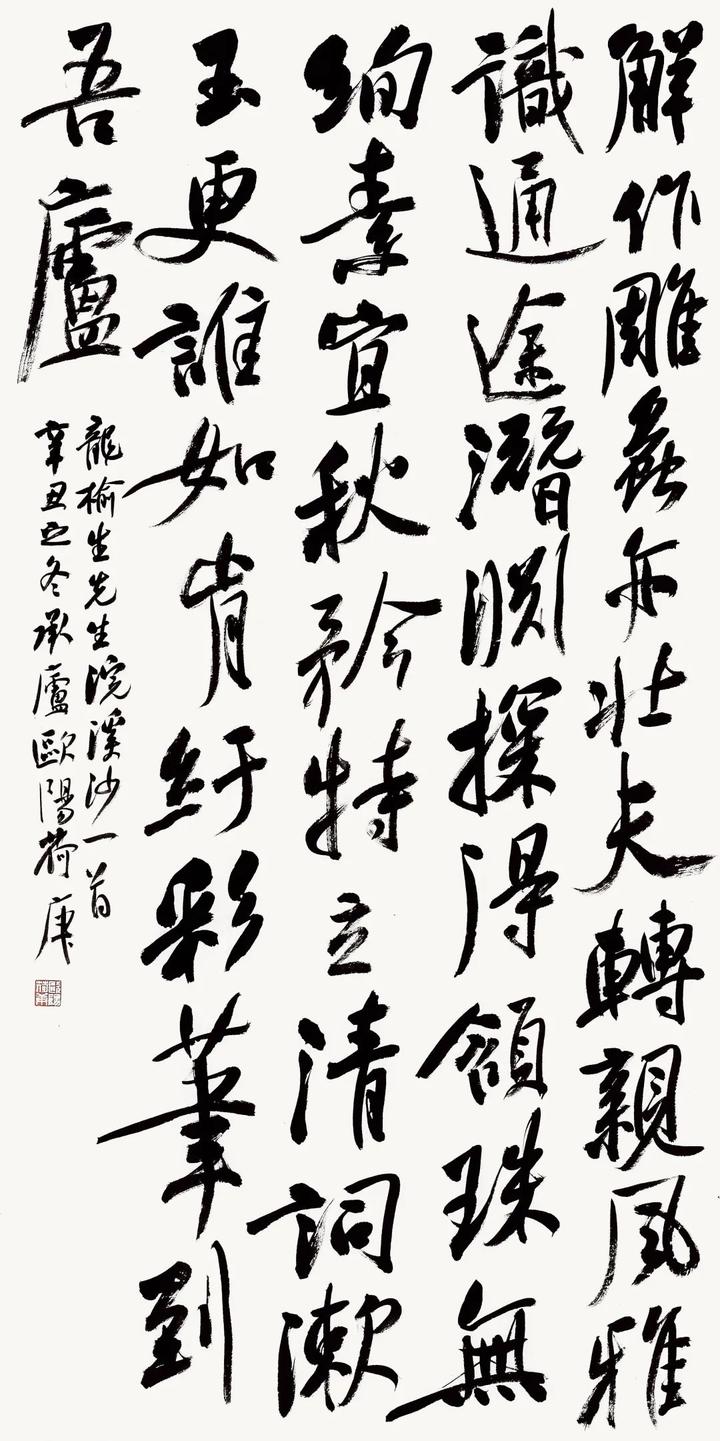 解作雕蟲亦壯夫轉親風雅
識通途潛淵探得頷珠無
絢素宜秋矜特立清詞漱
玉更誰如肯紆彩筆到
吾廬
龍榆生先生浣溪沙一首
辛丑之冬承廬歐陽荷庚